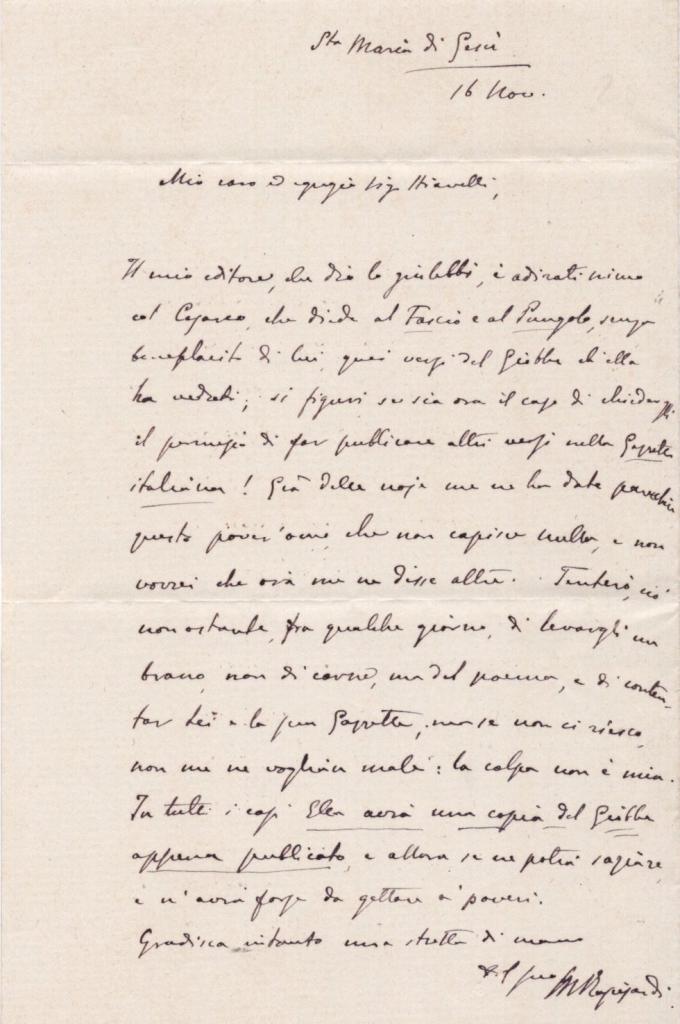 Sta Maria di Gesù
16 Nov.
Mio caro ed egregio Sig.
Il mio editore, che Dio lo giulebbi, è adiratissimo
col Cesareo, che diede al Fascio e al Pungolo, senza
beneplacito di lui, quei versi del Giobbe ch'ella
ha veduti; si figuri se sia ora il caso di chiedergli
il permesso di far publicare altri versi nella Gazzetta
italiana! Già delle noje me ne ha date parecchie
questo pover'omo, che non capisce nulla, e non
vorrei che ora me ne desse altre. Tenterò, ciò
nonostante, fra qualche giorno, di levargli un
brano, non di carne, ma del poema, e di conten-
tar Lei e la sua Gazzetta; ma se non ci riesco,
non me ne voglian male: la colpa non è mia.
In tutti i casi Ella avrà una copia del Giobbe
appena publicato, e allora se ne potrà saziare,
e n'avrà forse da gettare a' poveri.
Gradisca intanto una stretta di mano
del suo MRapisardi.